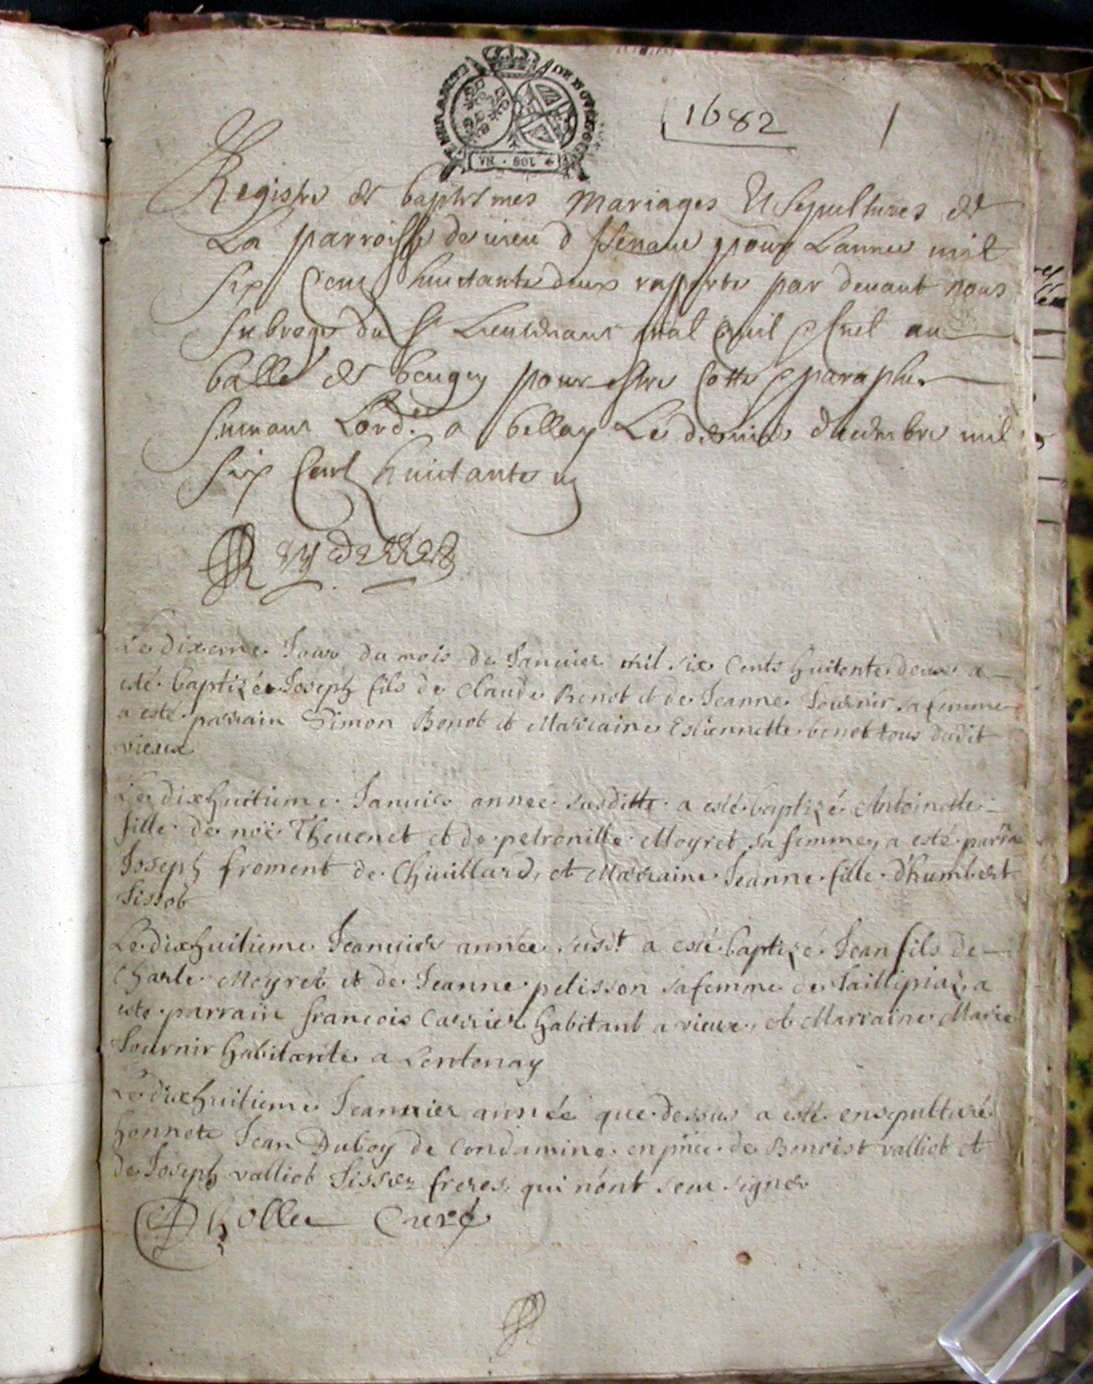 1682
Registre de baptesmes Mariages Et Sepultures de
La parroisse de vieu d Isenave pour Lannee mil
six Cent huictante deux rapporté par devant nous
Subrogé du Sr Lieutenant gnal Civil au
balle de beugey pour estre Cotté paraphé
suivant Lord.e a bellay Le dernier decembre mil
six Cent huictante un
Le dixeme Jour du mois de Januier mil six Cents huitente deux a
esté baptizé Joseph fils de Claude Benot et de Jeanne Tournir sa femme
a esté parrain Simon Benot et Marraine Estiennette benet tous dudit
vieux
Le dixhuitieme Januier annee susditte a esté baptizé Antoinette
fille de noë Theuenet et de petronille Moyret sa femme, a esté parrin
Joseph froment de Chivillard, et Marraine Jeanne fille dhumbert
Tissot
Le dixhuitieme Jeanuier année susdt a esté baptizé Jean fils de
Charle Moyret et de Jeanne pelisson sa femme de a
esté parrain francois Carrier habitant a vieux, et Marraine Marie
Tournir habitante a Lentenay
Le dixhuitieme Jeanuier année que dessus a esté ensepulturé
honnete Jean Duboy de Condamine en pnce de Benoist valliot et
de Joseph valliot Tissier freres qui nont sceu signer
Curé